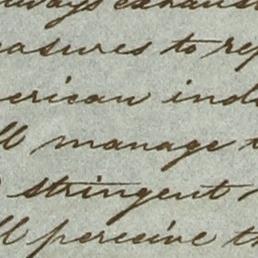 always exhaust
easures to rep
merican ind
ll manage
stringent
ll perceive th